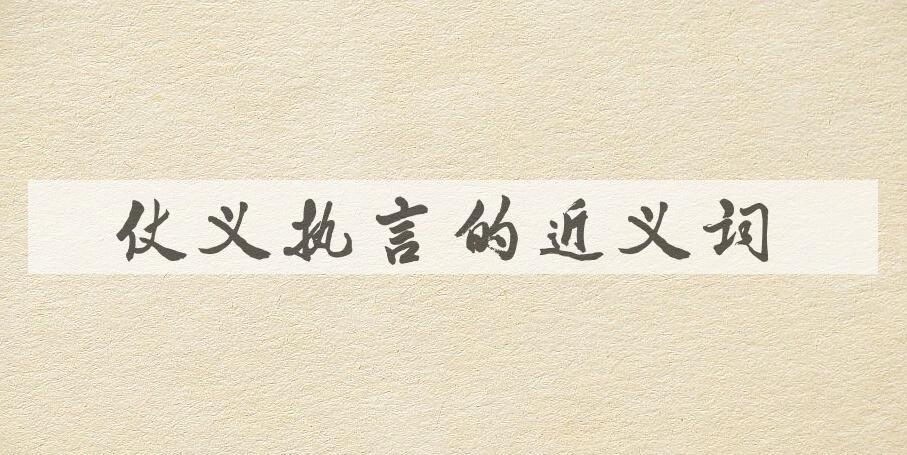 仗义执言的近义词